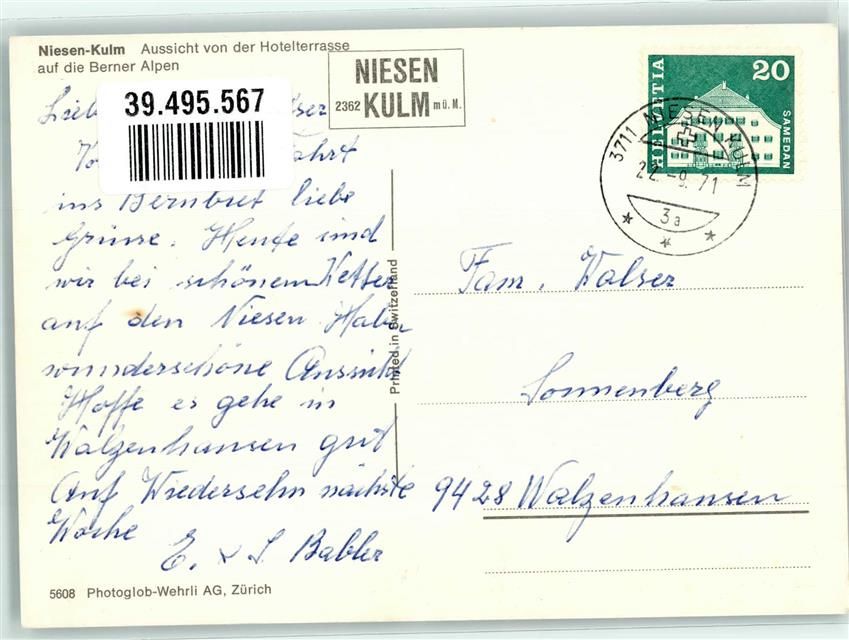 Niesen-Kulm Aussicht von der Hotelterrasse
auf die Berner Alpen
NIESEN
2362 KULM m ü. M.
39.495.567
HELVETIA
20
SAMEDAN
3711 NIESEN KULM
22.-9.71
3a
ins Bernbiet liebe
Grüsse. Heute sind
wir bei schönem Wetter
auf den Niesen Haben
wunderschöne Aussicht
Hoffe es gehe in
Walzenhausen gut
Auf Wiedersehn nächste
Woche
E. & S. Babler
Printed in Switzerland
Fam. Walser
Sonnenberg
9428 Walzenhausen
5608 Photoglob-Wehrli AG, Zürich